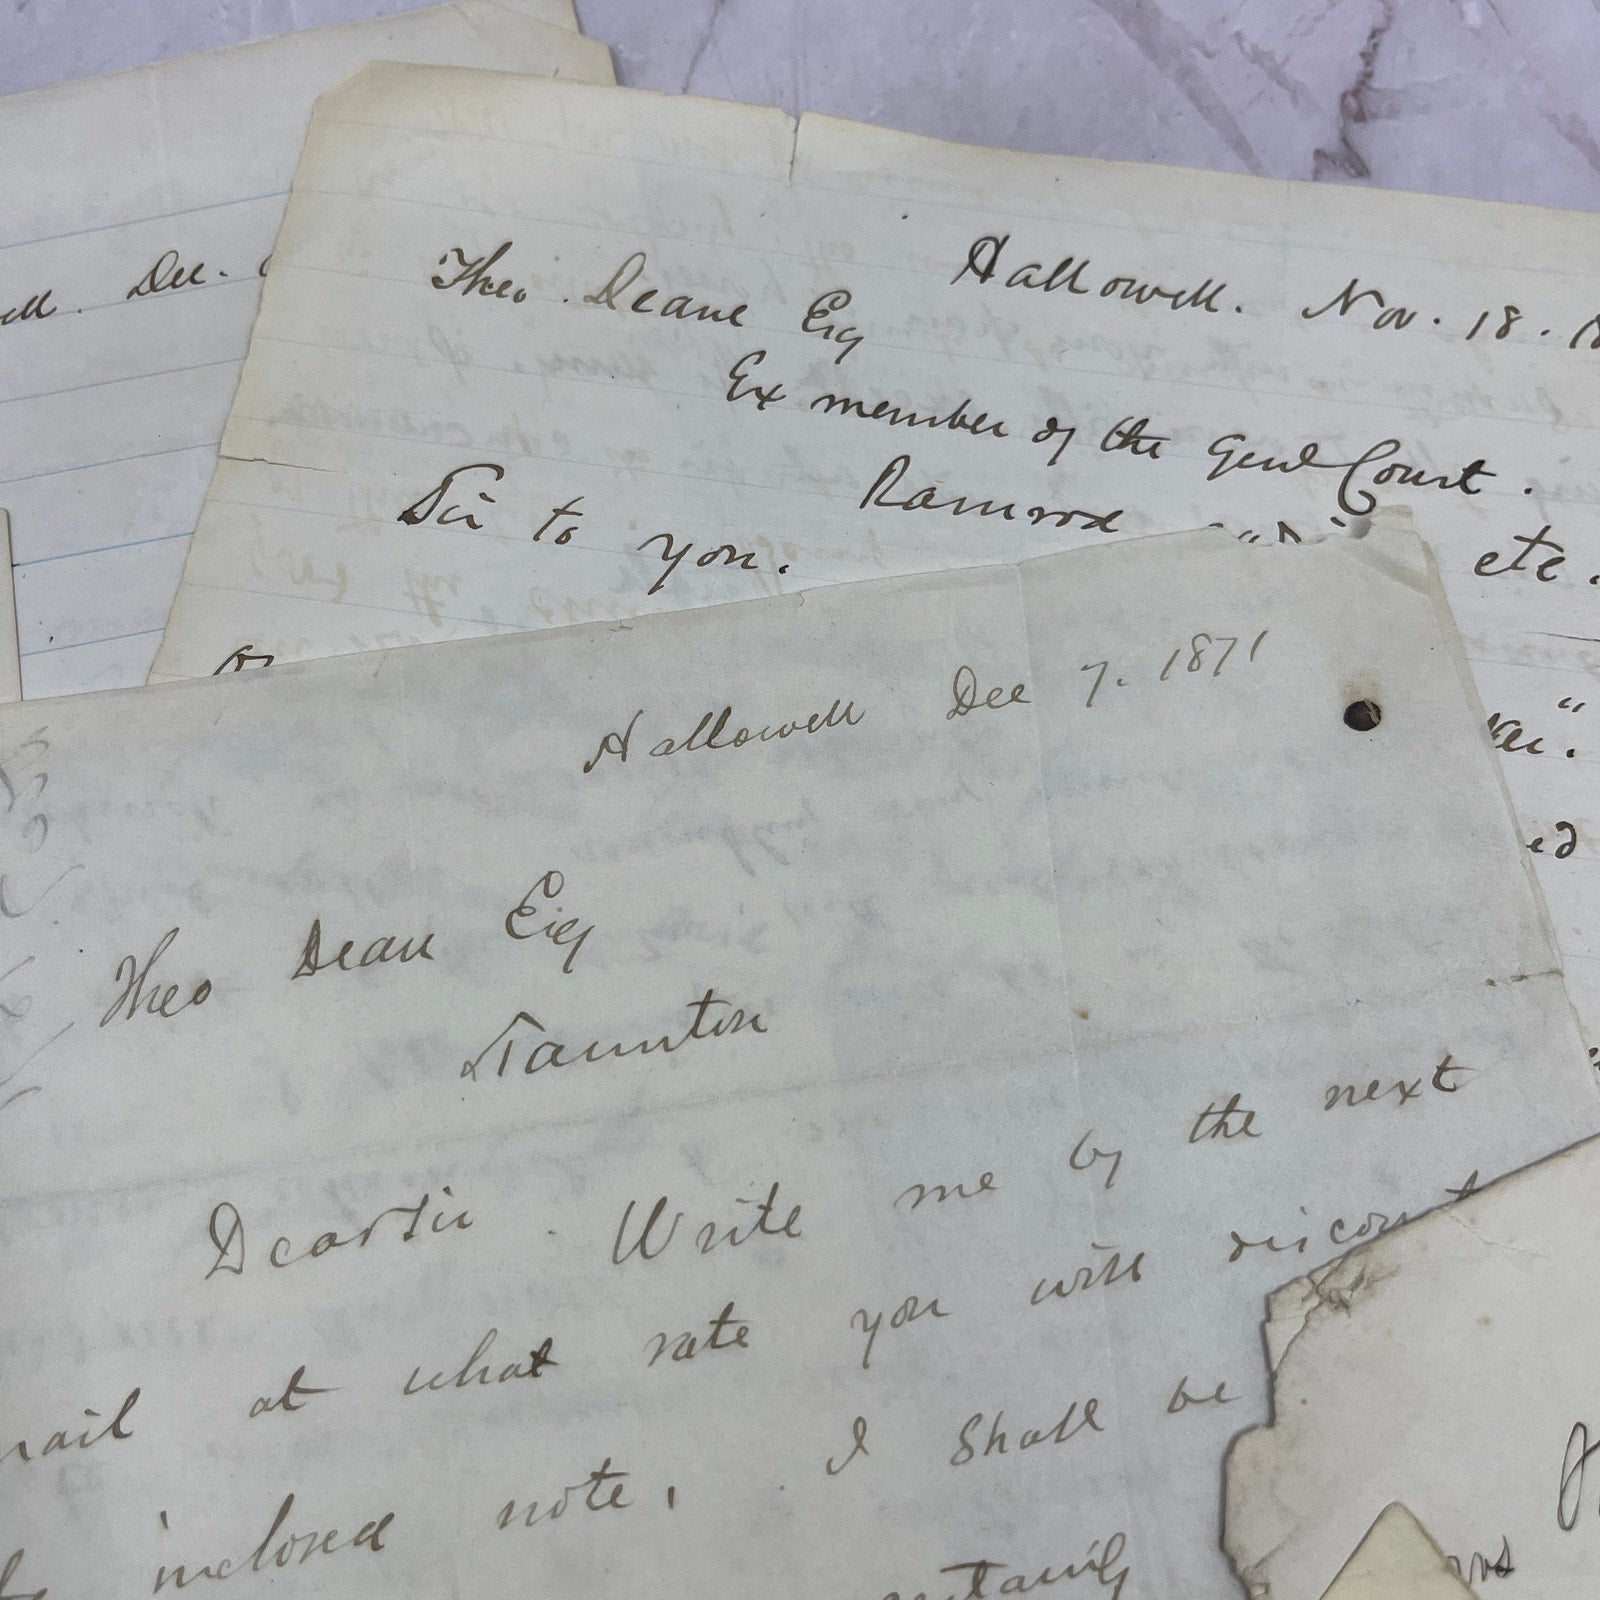 Dec.
Theo. Deane Esq
Hallowell. Nov. 18.
Ex member of the Genl Court.
Ramrod etc.
Sir to you.
Hallowell Dec 7. 1871
ed
Theo Deane Esq
Taunton
Dear Sir. Write me by the next
mail at what rate you will discount
inclosed note, I shall be